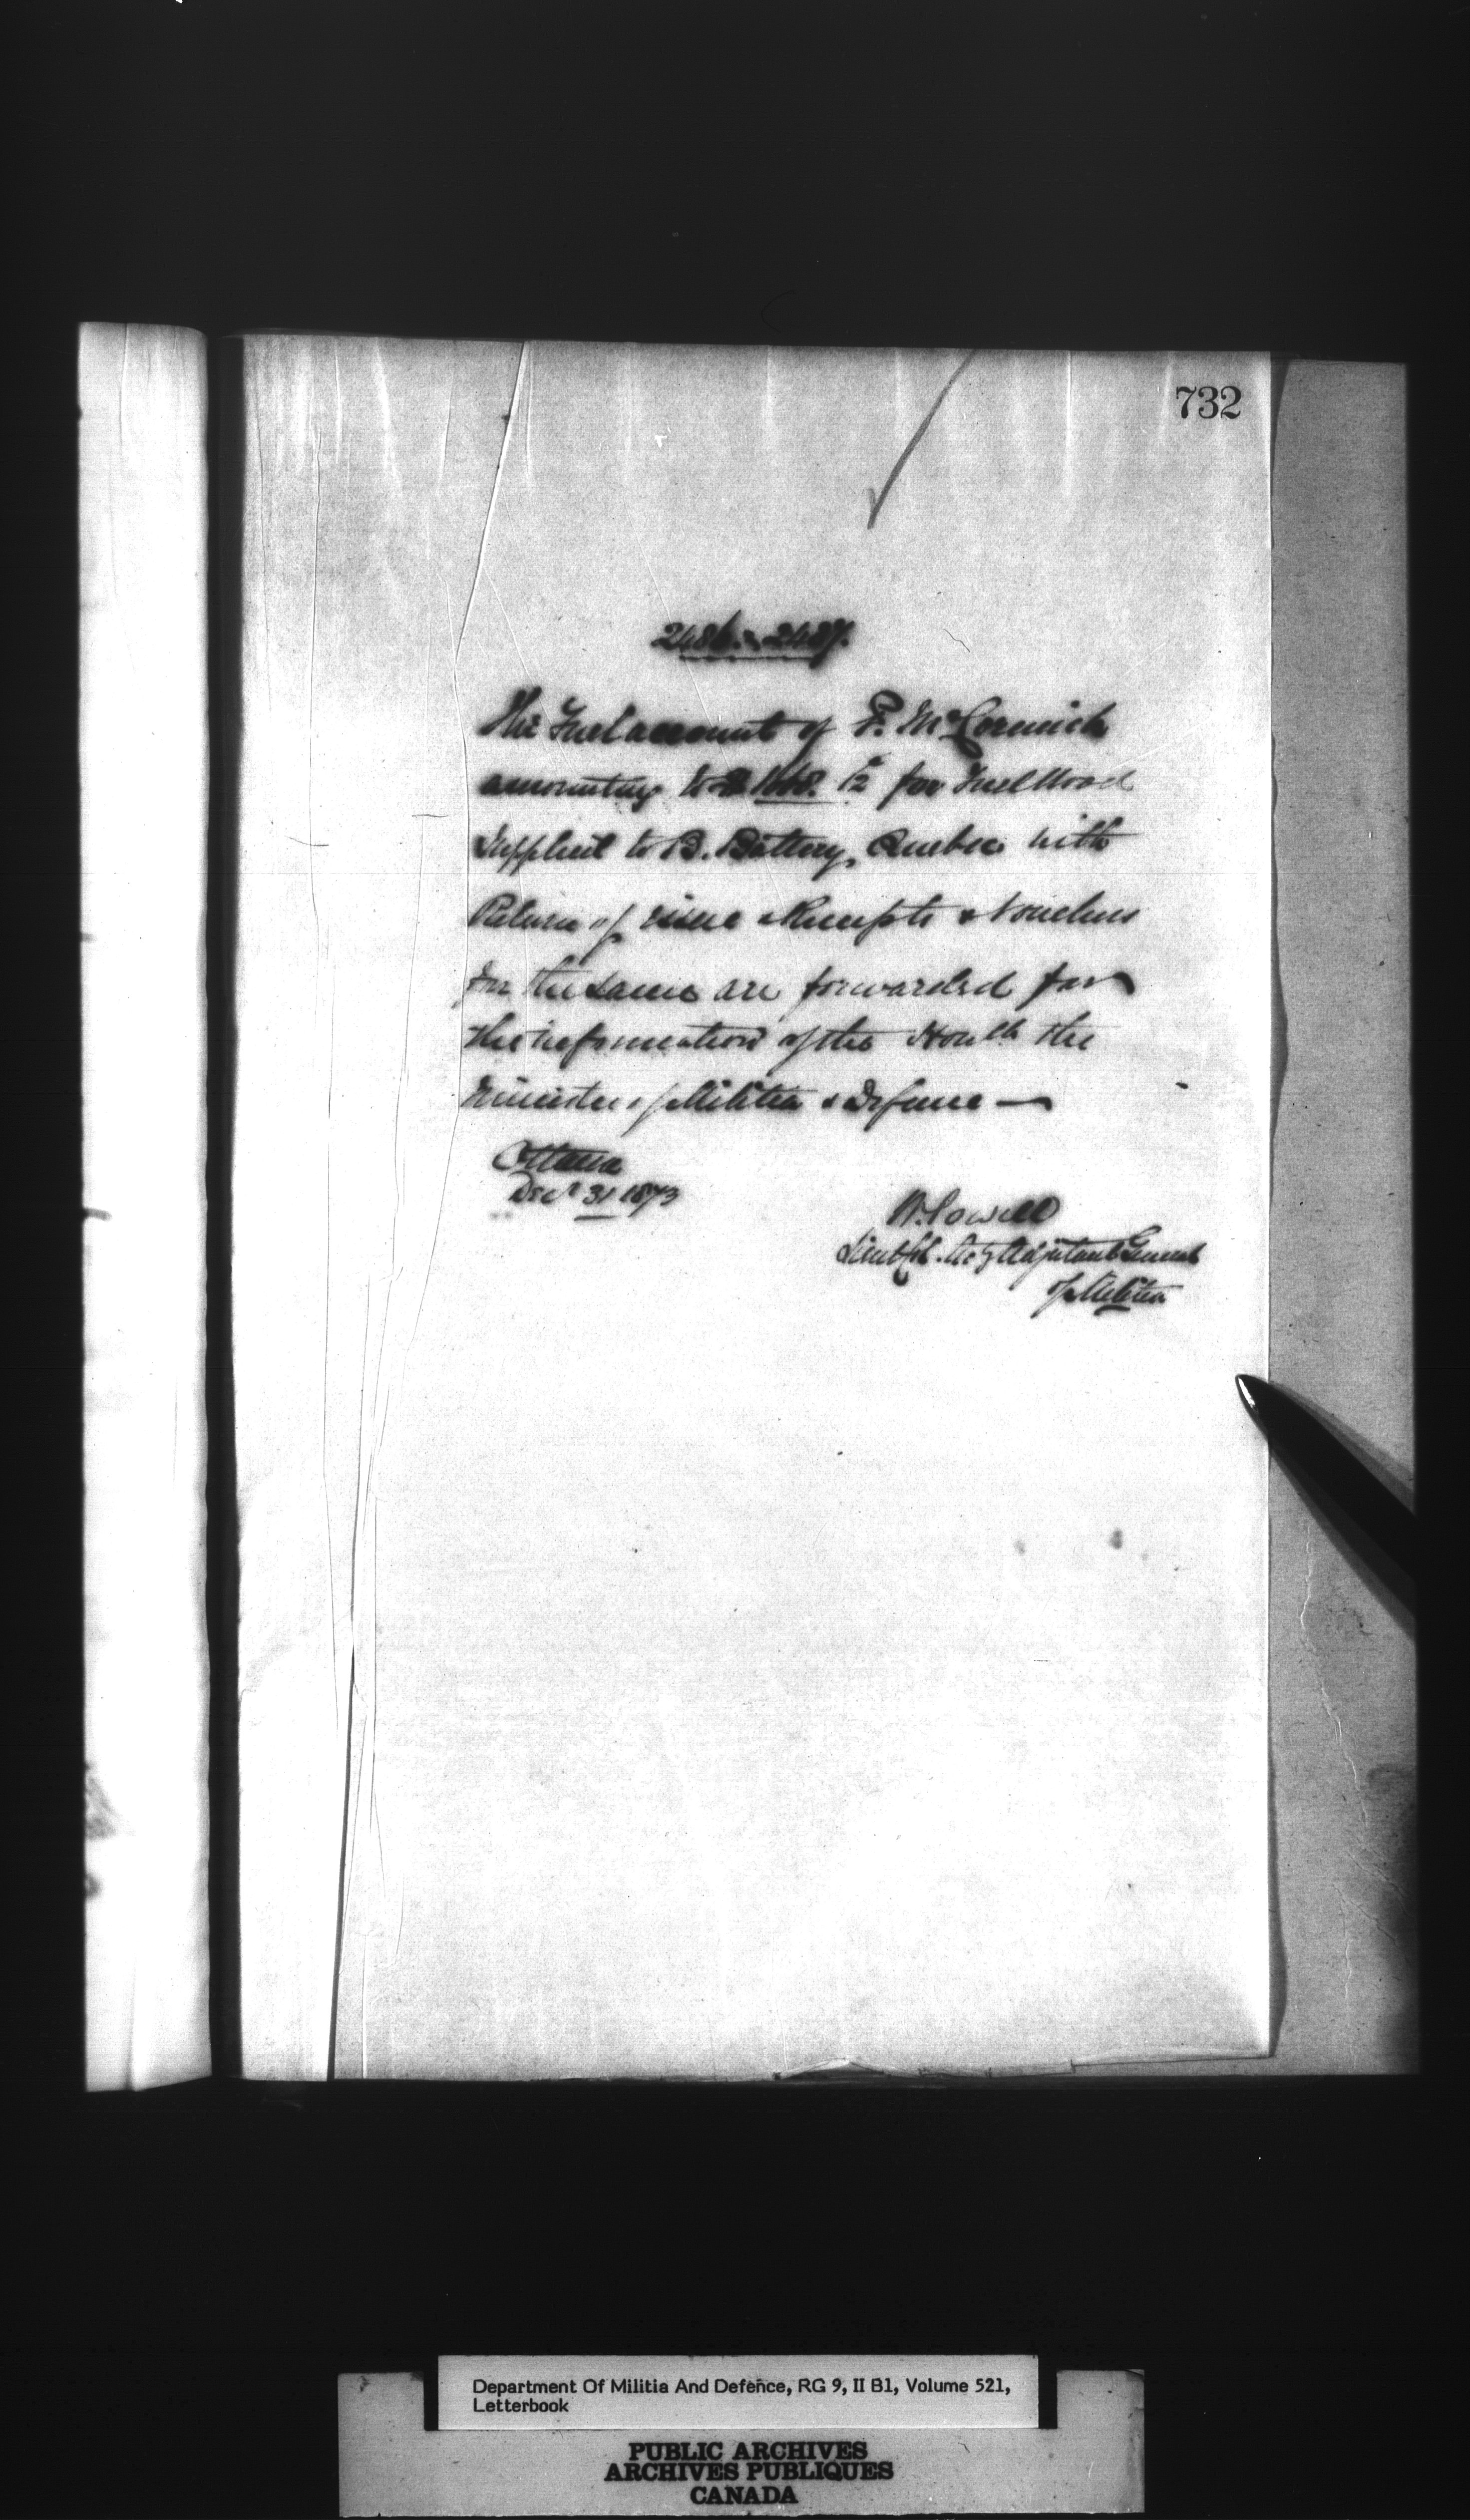 732
2486. & 2487.
The Fuel account of P. McCormick
amounting to $ for Fuel Wood
Supplied to B. Battery, Quebec with
Return of issue Receipts & Vouchers
for the same are forwarded for
the information of the Honble the
Minister of Militia & Defence —
Ottawa
Decr 31 1873
W. Powell
Lieut Col. Actg Adjutant General
of Militia
Department Of Militia And Defence, RG 9, II B1, Volume 521,
Letterbook
PUBLIC ARCHIVES
ARCHIVES PUBLIQUES
CANADA